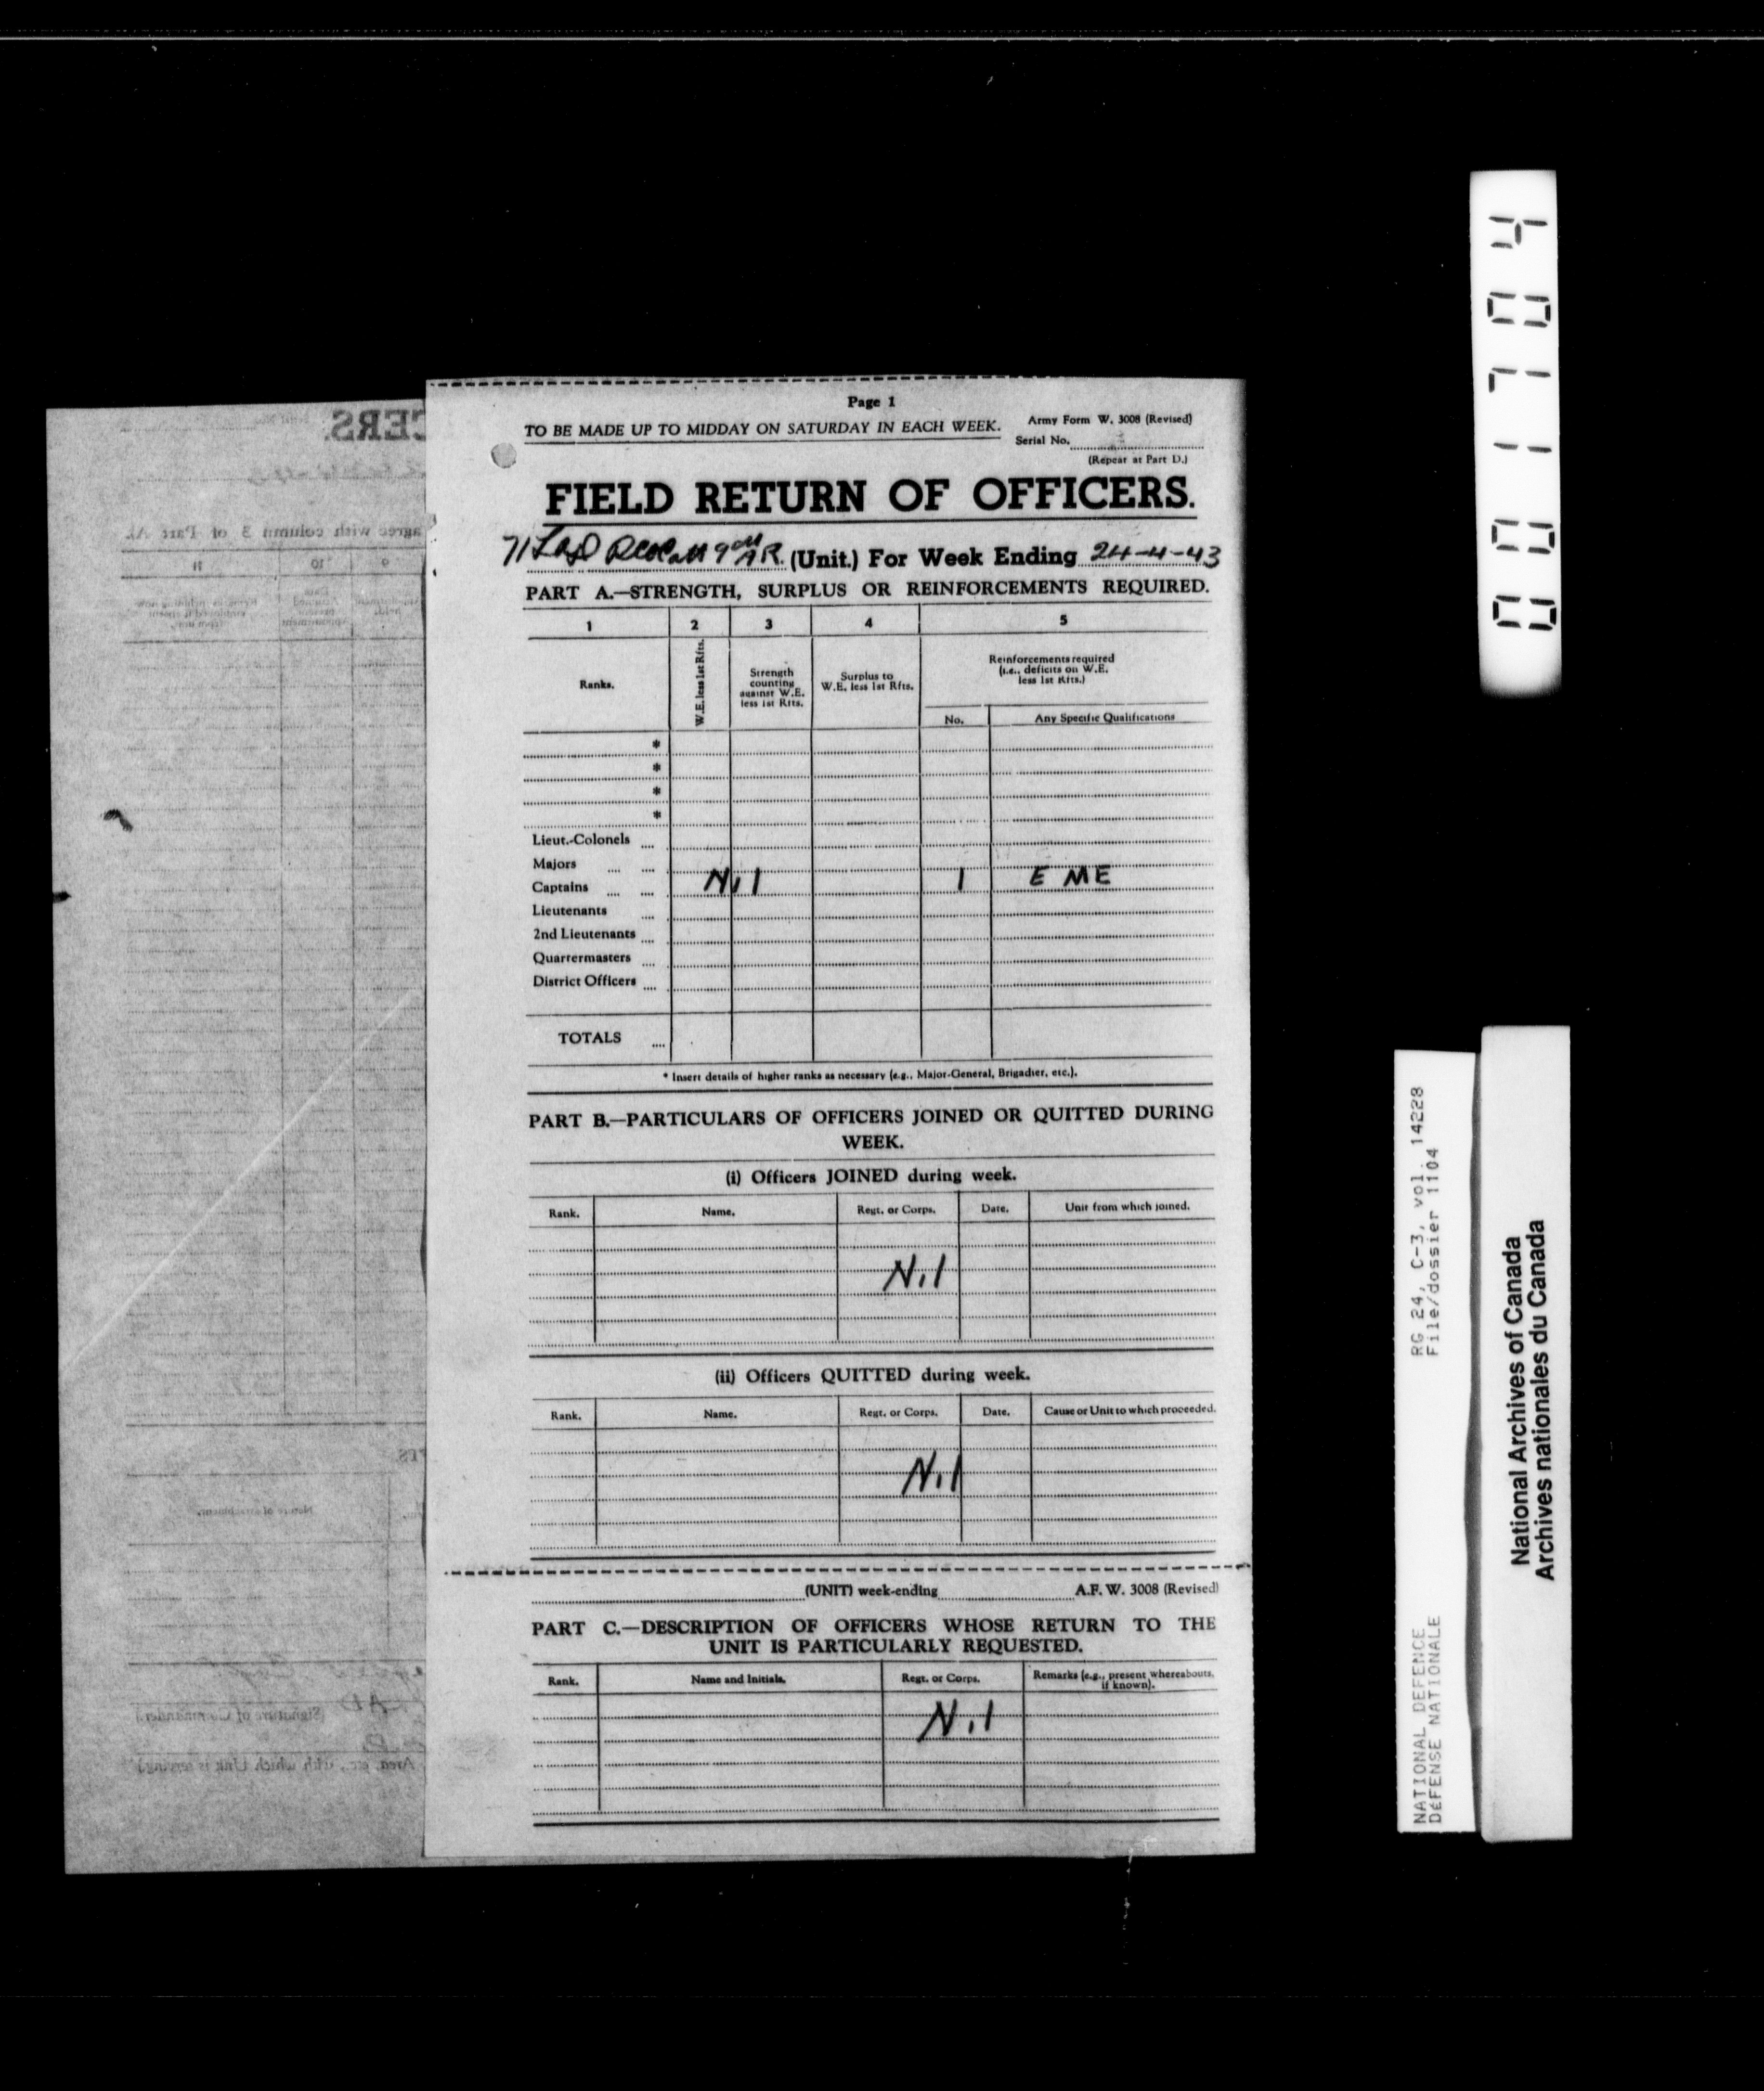 Page 1
TO BE MADE UP TO MIDDAY ON SATURDAY IN EACH WEEK.
Army Form W. 3008 (Revised)
Serial No.
(Repeat at Part D.)
FIELD RETURN OF OFFICERS.
71 LAD 9th AR. (Unit.) For Week Ending 24-4-43
PART A.—STRENGTH, SURPLUS OR REINFORCEMENTS REQUIRED.
1 2 3 4 5
Ranks.
W.E. less 1st Rfts.
Strength
counting
against W.E.
less 1st Rfts.
Surplus to
W.E. less 1st Rfts.
Reinforcements required
(i.e., deficits on W.E.
less 1st Rfts.)
No. Any Specific Qualifications
*
*
*
*
Lieut.-Colonels ....
Majors .... ....
Captains .... .... Nil 1 E M E
Lieutenants ....
2nd Lieutenants ....
Quartermasters ....
District Officers ....
TOTALS ....
* Insert details of higher ranks as necessary (e.g., Major-General, Brigadier, etc.).
PART B.—PARTICULARS OF OFFICERS JOINED OR QUITTED DURING
WEEK.
(i) Officers JOINED during week.
Rank. Name. Regt. or Corps. Date. Unit from which joined.
Nil
(ii) Officers QUITTED during week.
Rank. Name. Regt. or Corps. Date. Cause or Unit to which proceeded.
Nil
(UNIT) week-ending A.F. W. 3008 (Revised)
PART C.—DESCRIPTION OF OFFICERS WHOSE RETURN TO THE
UNIT IS PARTICULARLY REQUESTED.
Rank. Name and Initials. Regt. or Corps. Remarks (e.g., present whereabouts,
if known).
Nil
001704
RG 24, C-3, vol. 14228
File/dossier 1104
NATIONAL DEFENCE
DÉFENSE NATIONALE
National Archives of Canada
Archives nationales du Canada